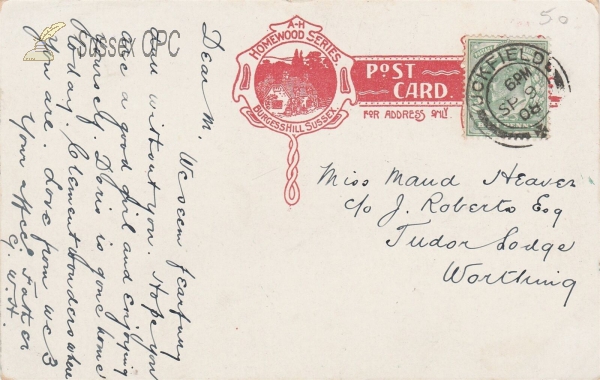 50
Sussex OPC
A-H
HOMEWOOD SERIES.
BURGESSHILL SUSSEX
POST
CARD.
FOR ADDRESS ONLY.
UCKFIELD
6 PM
SP 9
08
Miss Maud Heaver
c/o J. Roberts Esq
Tudor Lodge
Worthing
Dear M. We seem
dull without you. Hope you
are a good girl and enjoying
yourself Doris is gone home
today. Clement wonders where
you are. Love from we 3
Your affec. Father
G. W. H.